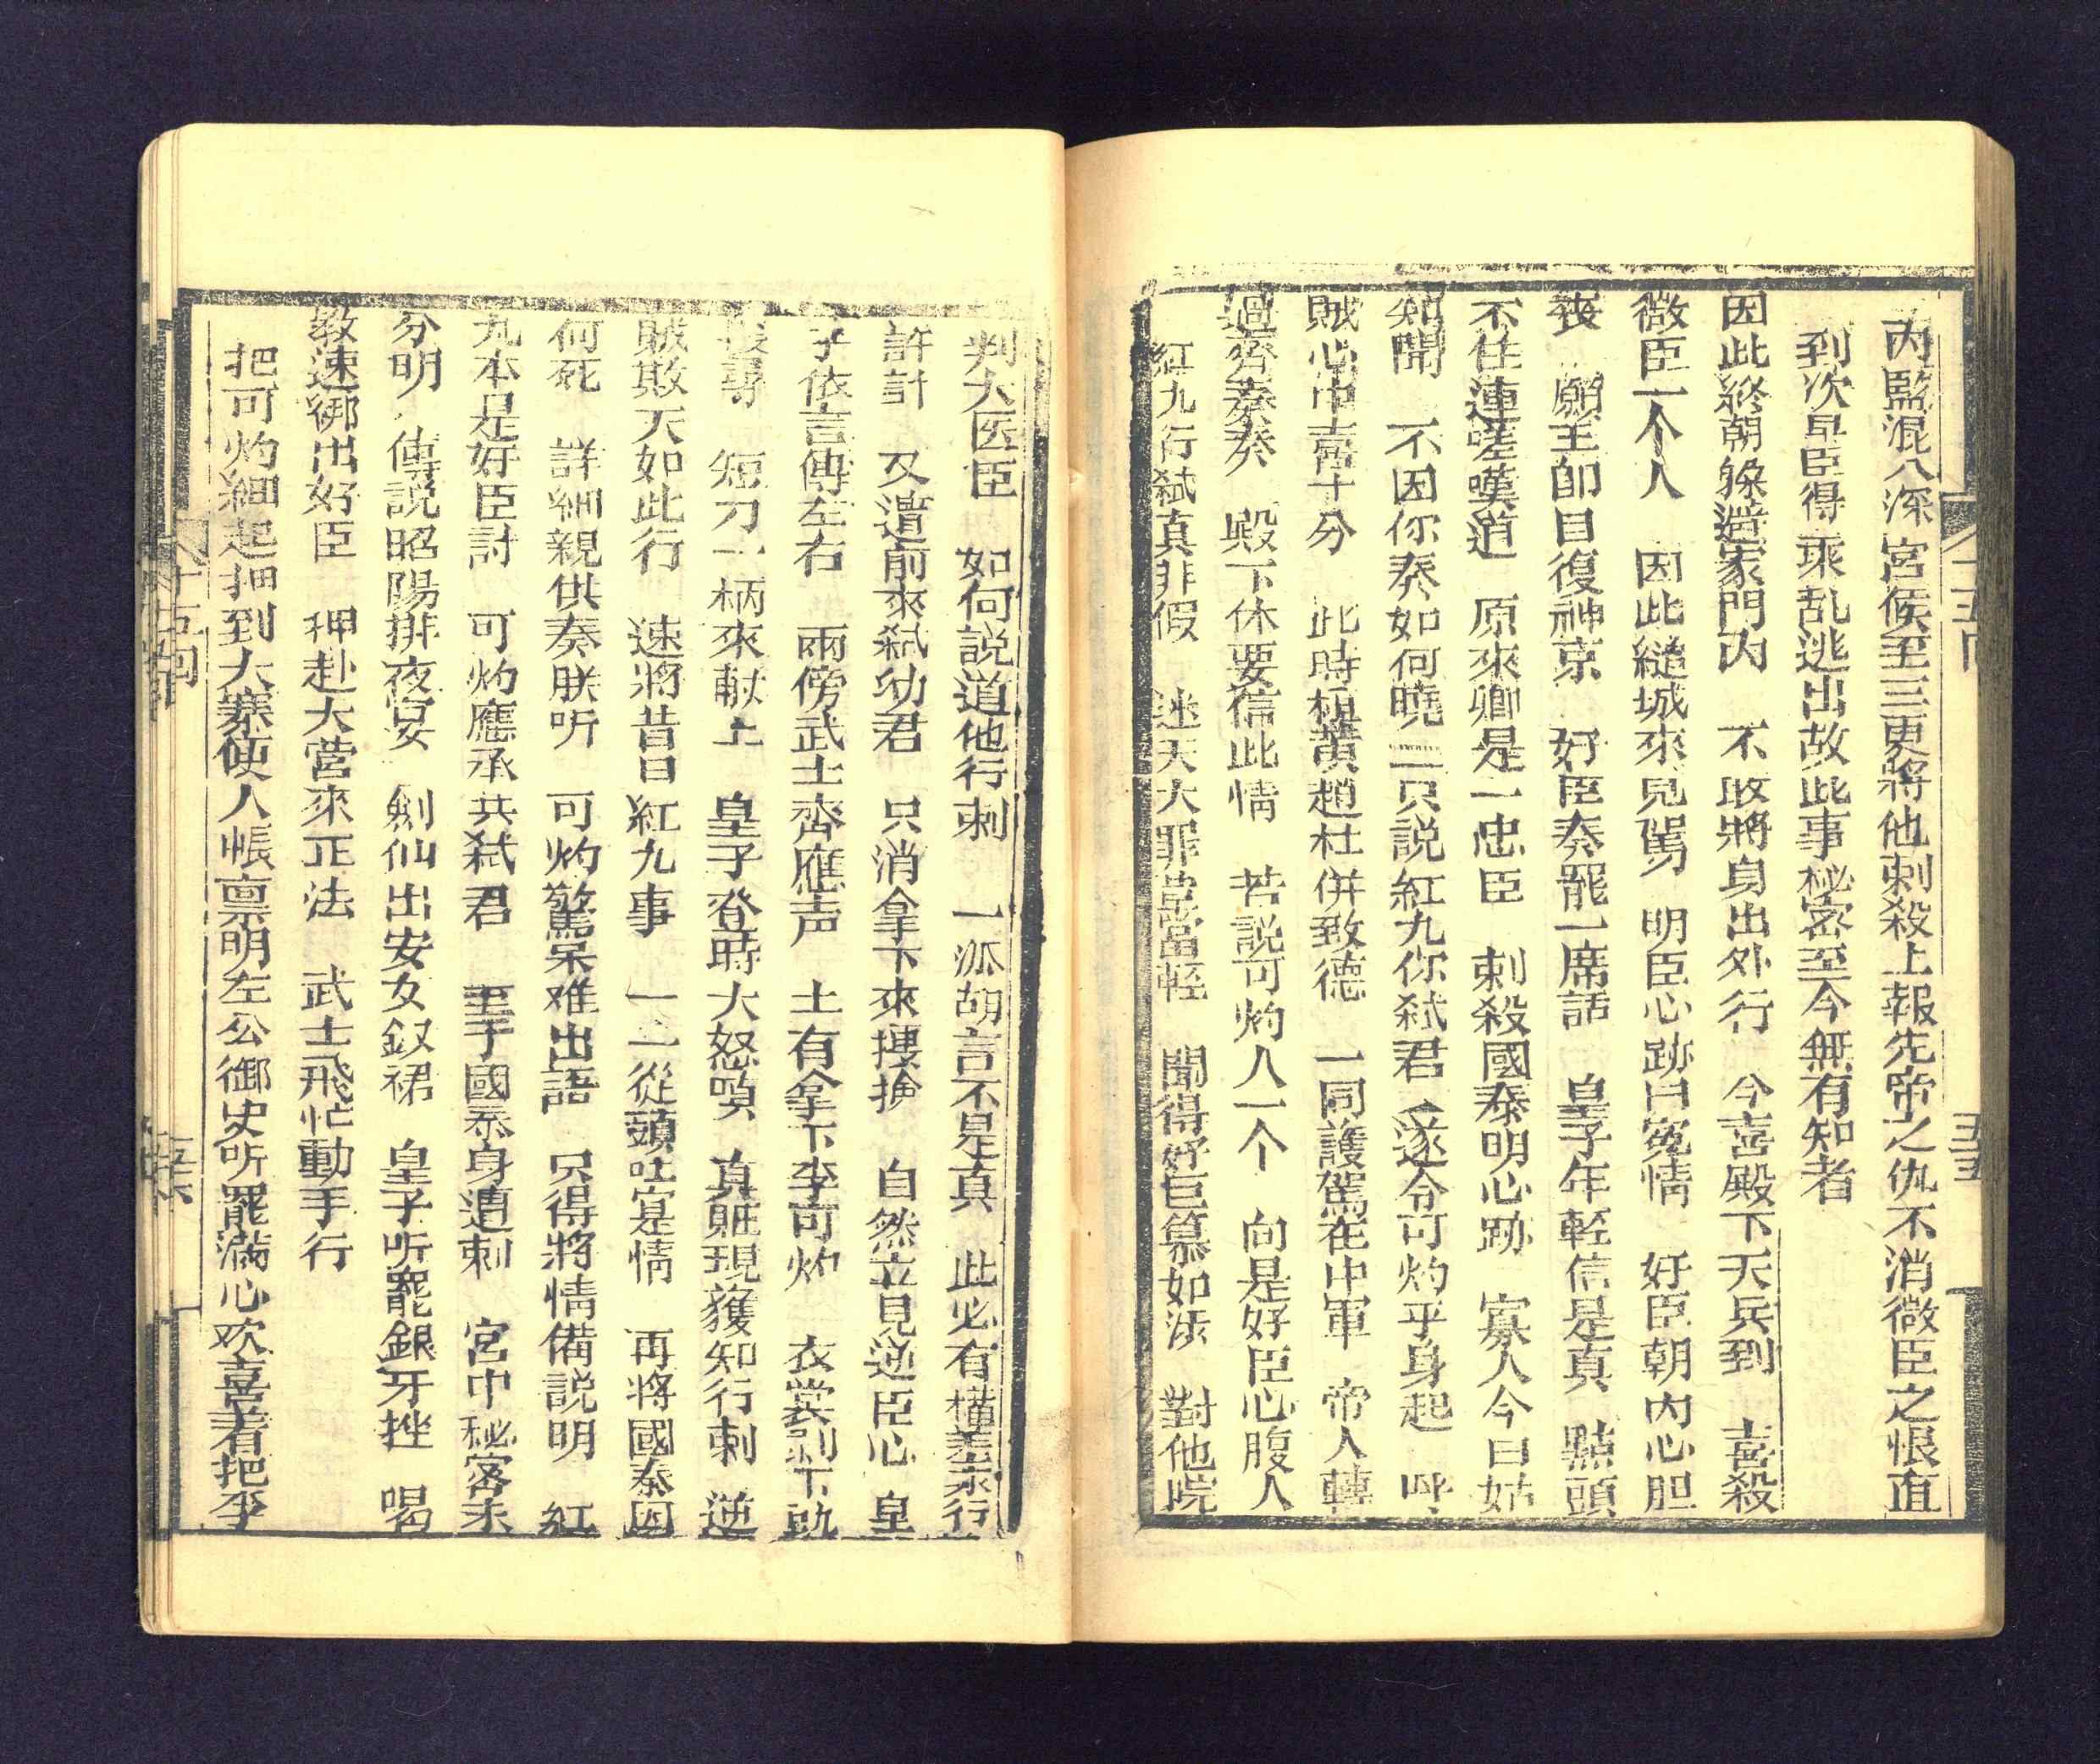 内監混入深宮候至三更將他刺殺上報先帝之仇不消微臣之恨直
到次早臣得乘乱逃出故此事秘密至今無有知者
因此終朝躱避家門内　不敢將身出外行　今喜殿下天兵到　喜殺
微臣一个人　因此縋城來見駕　明臣心跡白冤情　奸臣朝内心胆
喪　願王即日復神京　奸臣奏罷一席話　皇子年輕信是真　點頭
不住連嗟嘆道　原來卿是一忠臣　刺殺國泰明心跡　寡人今日始
知聞　不因你奏如何曉　只説紅丸你弑君　遂令可灼平身起　呼
賊心中喜十分　此時楊黄趙杜併致德　一同護駕在中軍　帝人轉
過齊奏　殿下休要信此情　若説可灼人一个　向是奸臣心腹人
紅丸行弑真非假　迷天大罪當輕　聞得奸臣慕如泌　對他院
判大医臣　如何説道他行刺　一派胡言不是真　此必有權行
許計　又遣前來弑幼君　只消拿下來搜撿　自然立見逆臣心　皇
子依言傳左右　兩傍武士齊應声　土有拿下李可灼　衣裳剥下
尋　短刀一柄來献上　皇子登時大怒嗔　真賍現獲知行刺　逆
賊欺天如此行　速將昔日紅丸事　一一從頭吐寔情　再將國泰因
何死　詳細親供奏朕听　可灼驚呆难出語　只得將情備説明　紅
丸本是奸臣討　可灼應承共弑君　至于國泰身遭刺　宮中秘密未
分明　傳説昭陽排夜宴　劍仙出安女釵裙　皇子听罷銀牙挫　喝
教速鄉出奸臣　押赴大营來正法　武士飛忙動手行
把可灼細起押到大寨便人帳禀明左公御史听罷滿心欢喜着把李